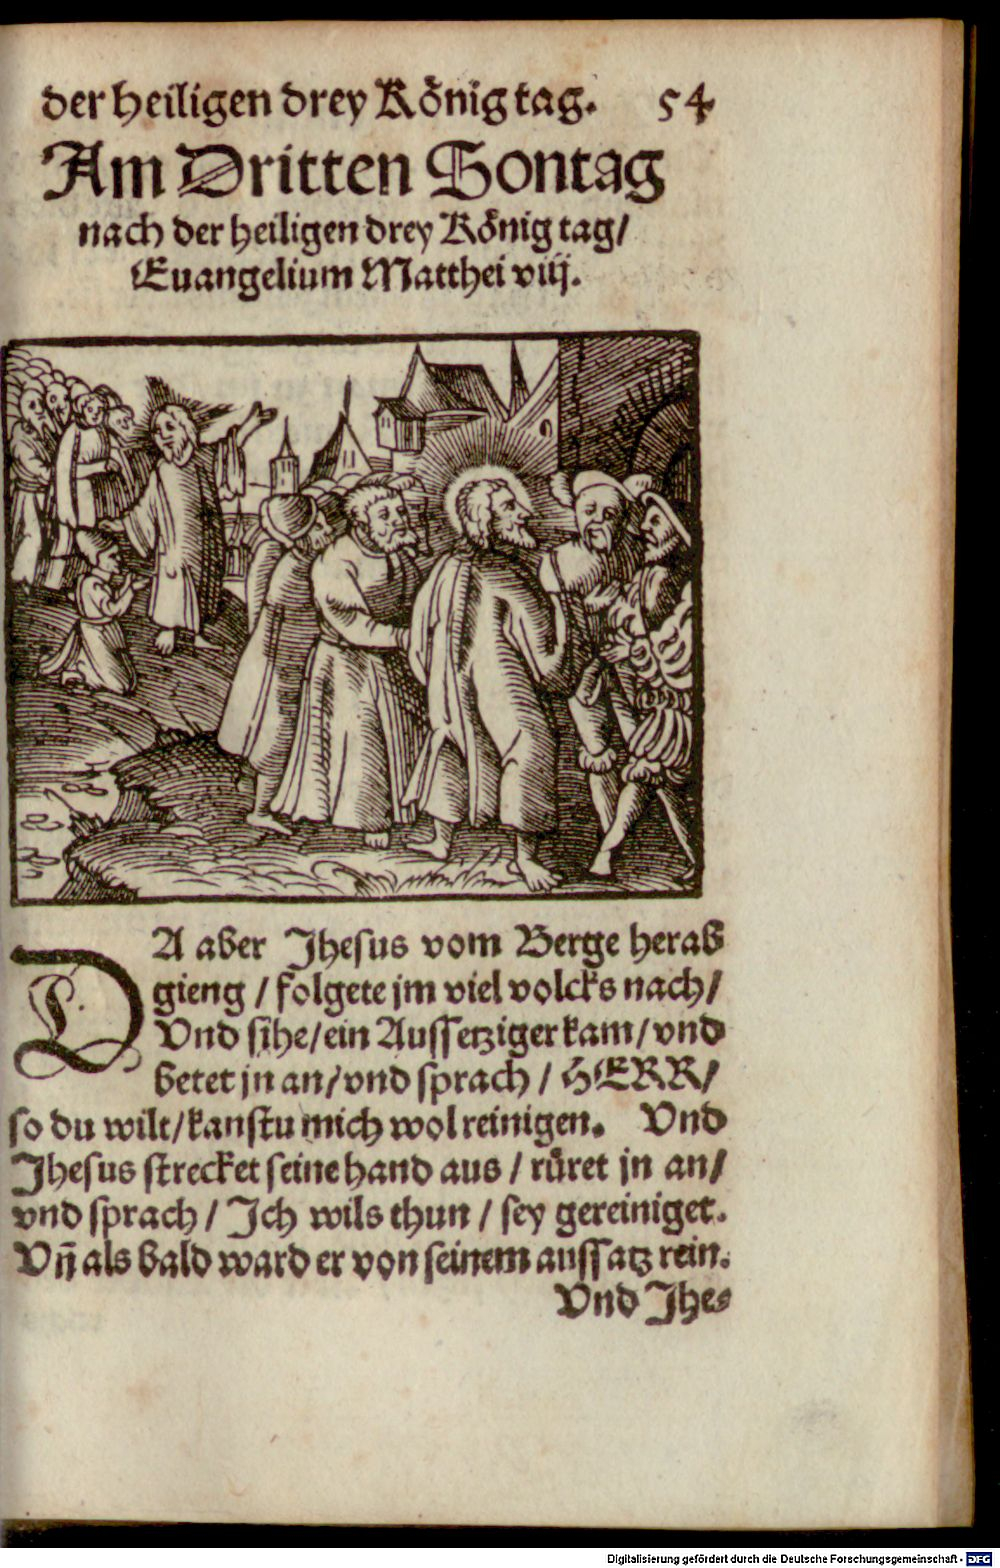 der heiligen drey Koͤnig tag. 54
Am Dritten Sontag
nach der heiligen drey Koͤnig tag/
Euangelium Matthei viij.
DA aber Jhesus vom Berge herab
gieng / folgete jm viel volcks nach/
Vnd sihe/ein Aussetziger kam/vnd
betet jn an/vnd sprach / HERR/
so du wilt/kanstu mich wol reinigen. Vnd
Jhesus strecket seine hand aus / ruͤret jn an/
vnd sprach / Jch wils thun / sey gereiniget.
Vn̄ als bald ward er von seinem aussatz rein.
Vnd Jhe⸗
Digitalisierung gefördert durch die Deutsche Forschungsgemeinschaft - DFG